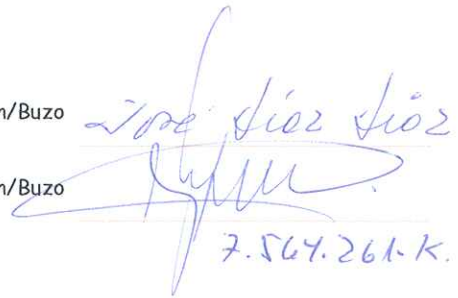 n/Buzo José Díaz Díaz
n/Buzo
7.564.261-K.